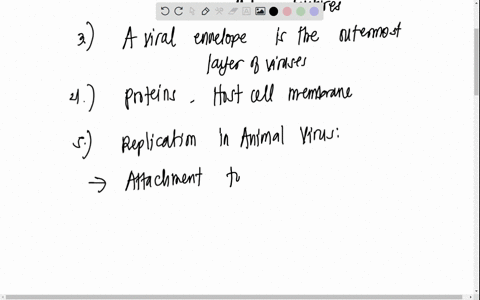 3.) A viral envelope is the outermost
layer of viruses
4.) proteins, Host cell membrane
5.) Replication in Animal Virus:
→ Attachment to